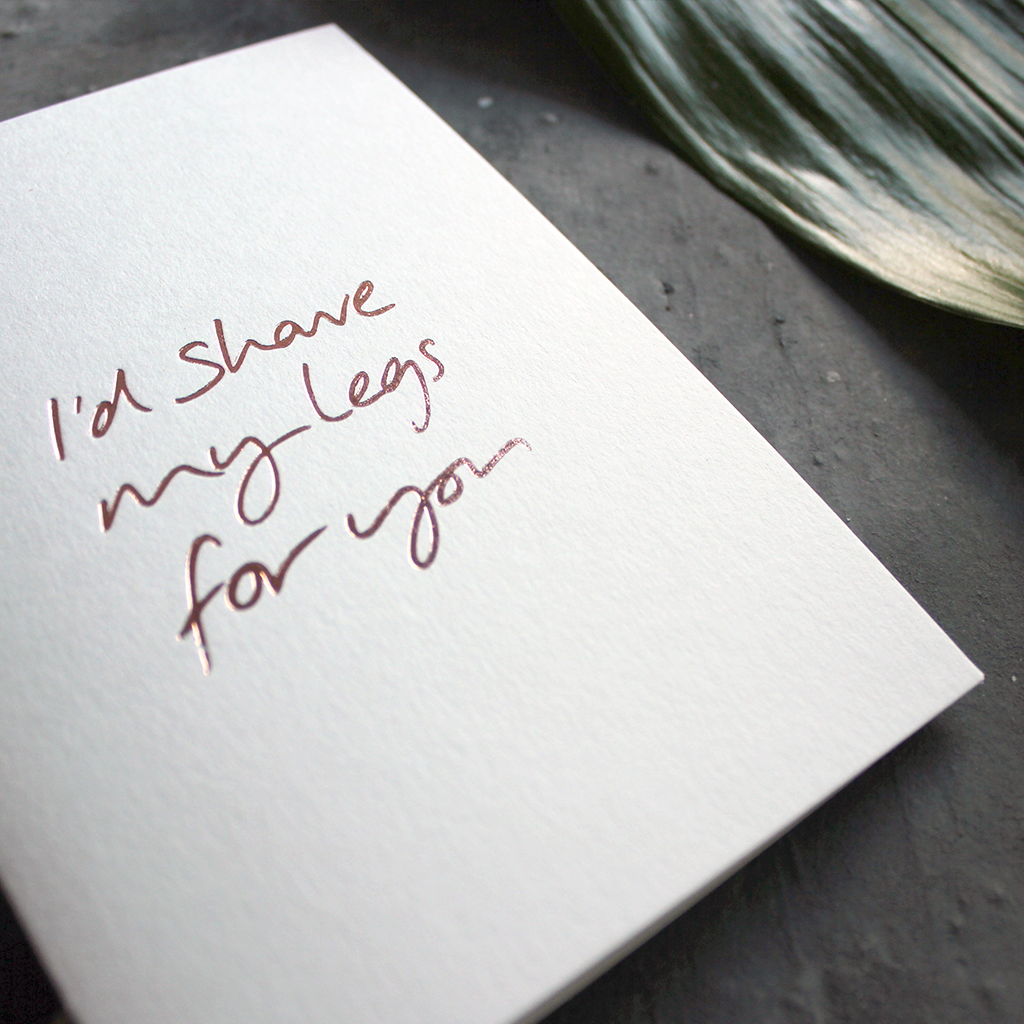 I'd Shave
my legs
for you